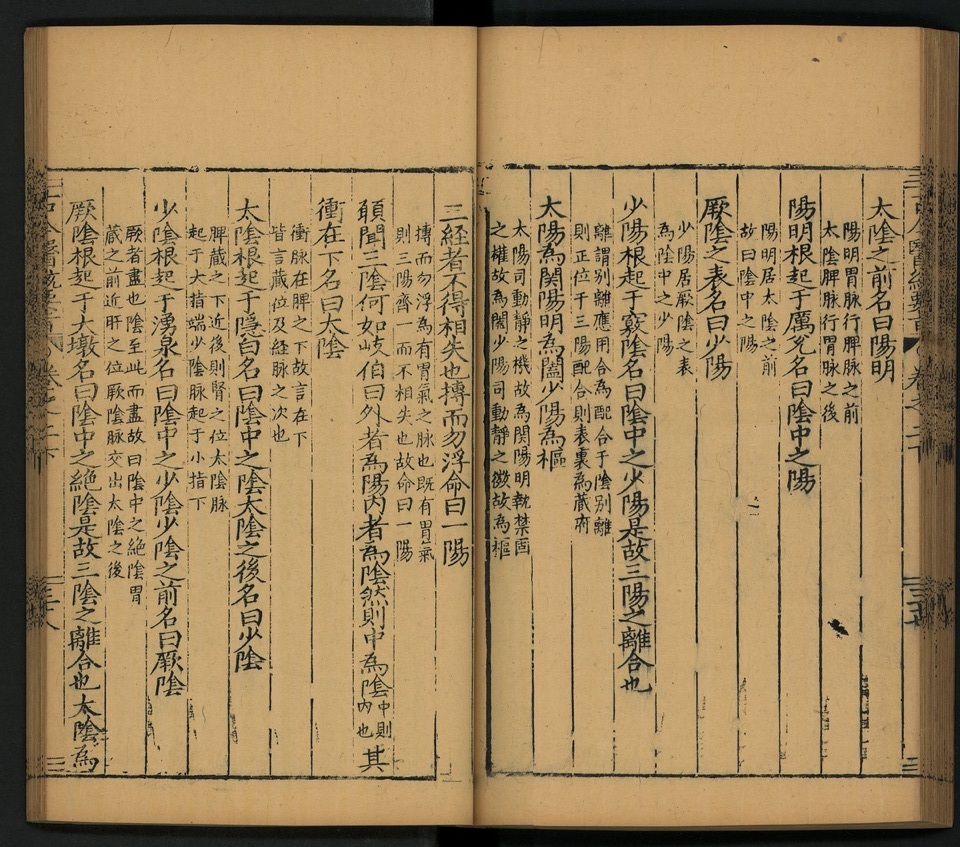 太陰之前名曰陽明
陽明胃脉行脾脉之前
太陰脾脉行胃脉之後
陽明根起于厲兊名曰陰中之陽
陽明居太陰之前
故曰陰中之陽
厥陰之表名曰少陽
少陽居厥陰之表
為陰中之少陽
少陽根起于竅陰名曰陰中之少陽是故三陽之離合也
離謂别離應用合為配合于陰别離
則正位于三陽配合則表裏為藏府
太陽為関陽明為闔少陽為樞
太陽司動靜之機故為関陽明執禁固
之權故為闔少陽司動靜之微故為樞
三經者不得相失也摶而勿浮命曰一陽
摶而勿浮為有胃氣之脉也既有胃氣
則三陽齊一而不相失也故命曰一陽
願聞三陰何如岐伯曰外者為陽内者為陰然則中為陰中則内也其
衝在下名曰太陰
衝脉在脾之下故言在下
皆言藏位及經脉之次也
太陰根起于隱白名曰陰中之陰太陰之後名曰少陰
脾藏之下近後則腎之位太陰脉
起于大指端少陰脉起于小指下
少陰根起于湧泉名曰陰中之少陰少陰之前名曰厥陰
厥者盡也陰至此而盡故曰陰中之絶陰胃
藏之前近肝之位厥陰脉交出太陰之後
厥陰根起于大墩名曰陰中之絶陰是故三陰之離合也太陰為